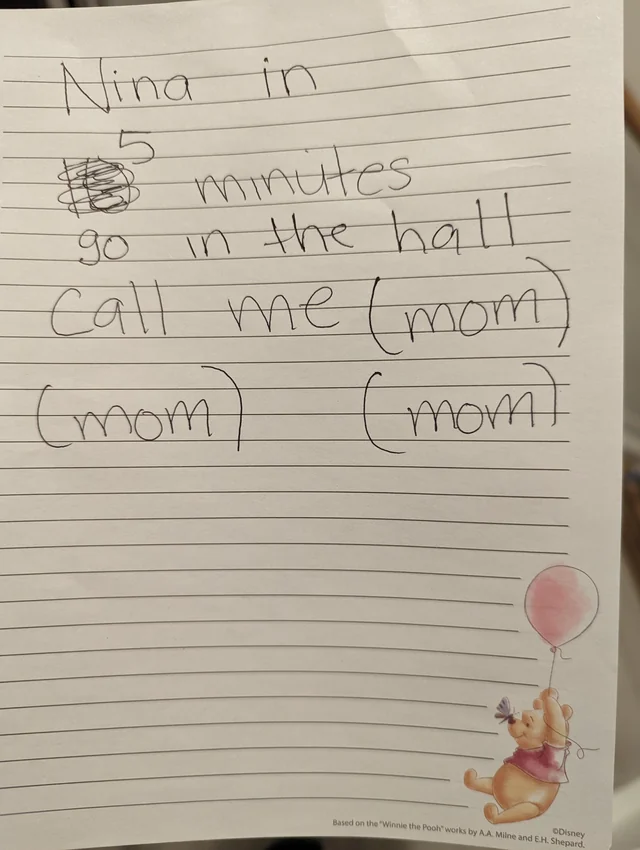 Nina in
5
minutes
go in the hall
Call me (mom)
(mom) (mom)
Based on the "Winnie the Pooh" works by A.A. Milne and E.H. Shepard.
©Disney